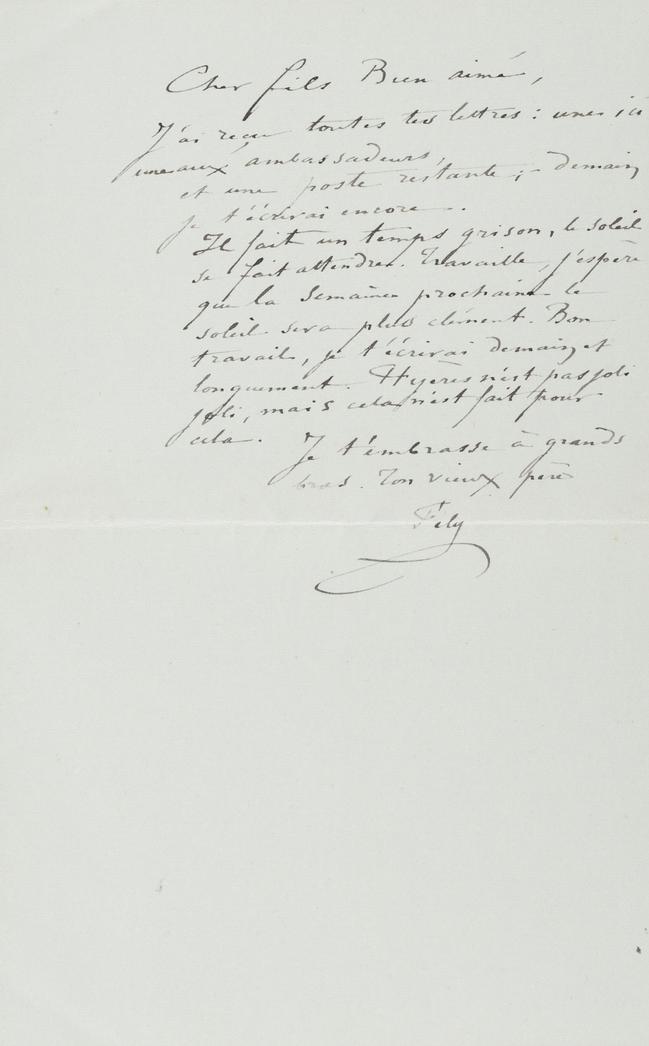 Cher fils Bien aimé,
J'ai reçu toutes tes lettres : une ici
une aux ambassadeurs,
et une poste restante ; - demain
je t'écrirai encore.
Il fait un temps grison, le soleil
se fait attendre. Travaille, j'espère
que la Semaine prochaine le
soleil sera plus clément. Bon
travail, je t'écrirai demain, et
longuement. Hyères n'est pas joli
joli, mais cela n'est fait pour
cela. Je t'embrasse à grands
bras. Ton vieux père
Fély